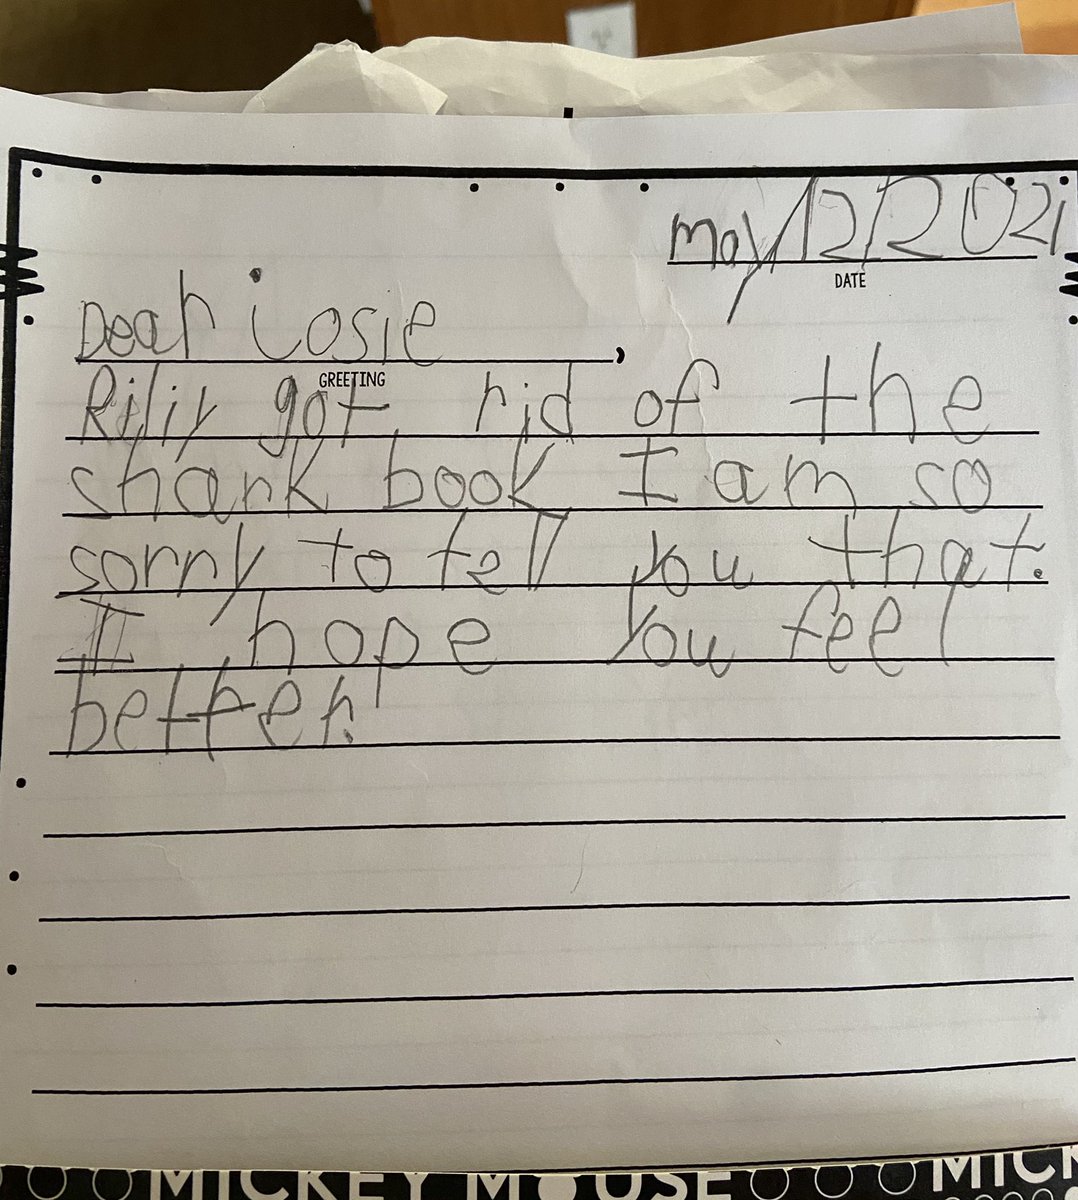 may/12/2021
DATE
Dear josie,
GREETING
Riliy got rid of the
shark book I am so
sorry to tell you that.
I hope you feel
better!
MICKEY MOUSE MICK